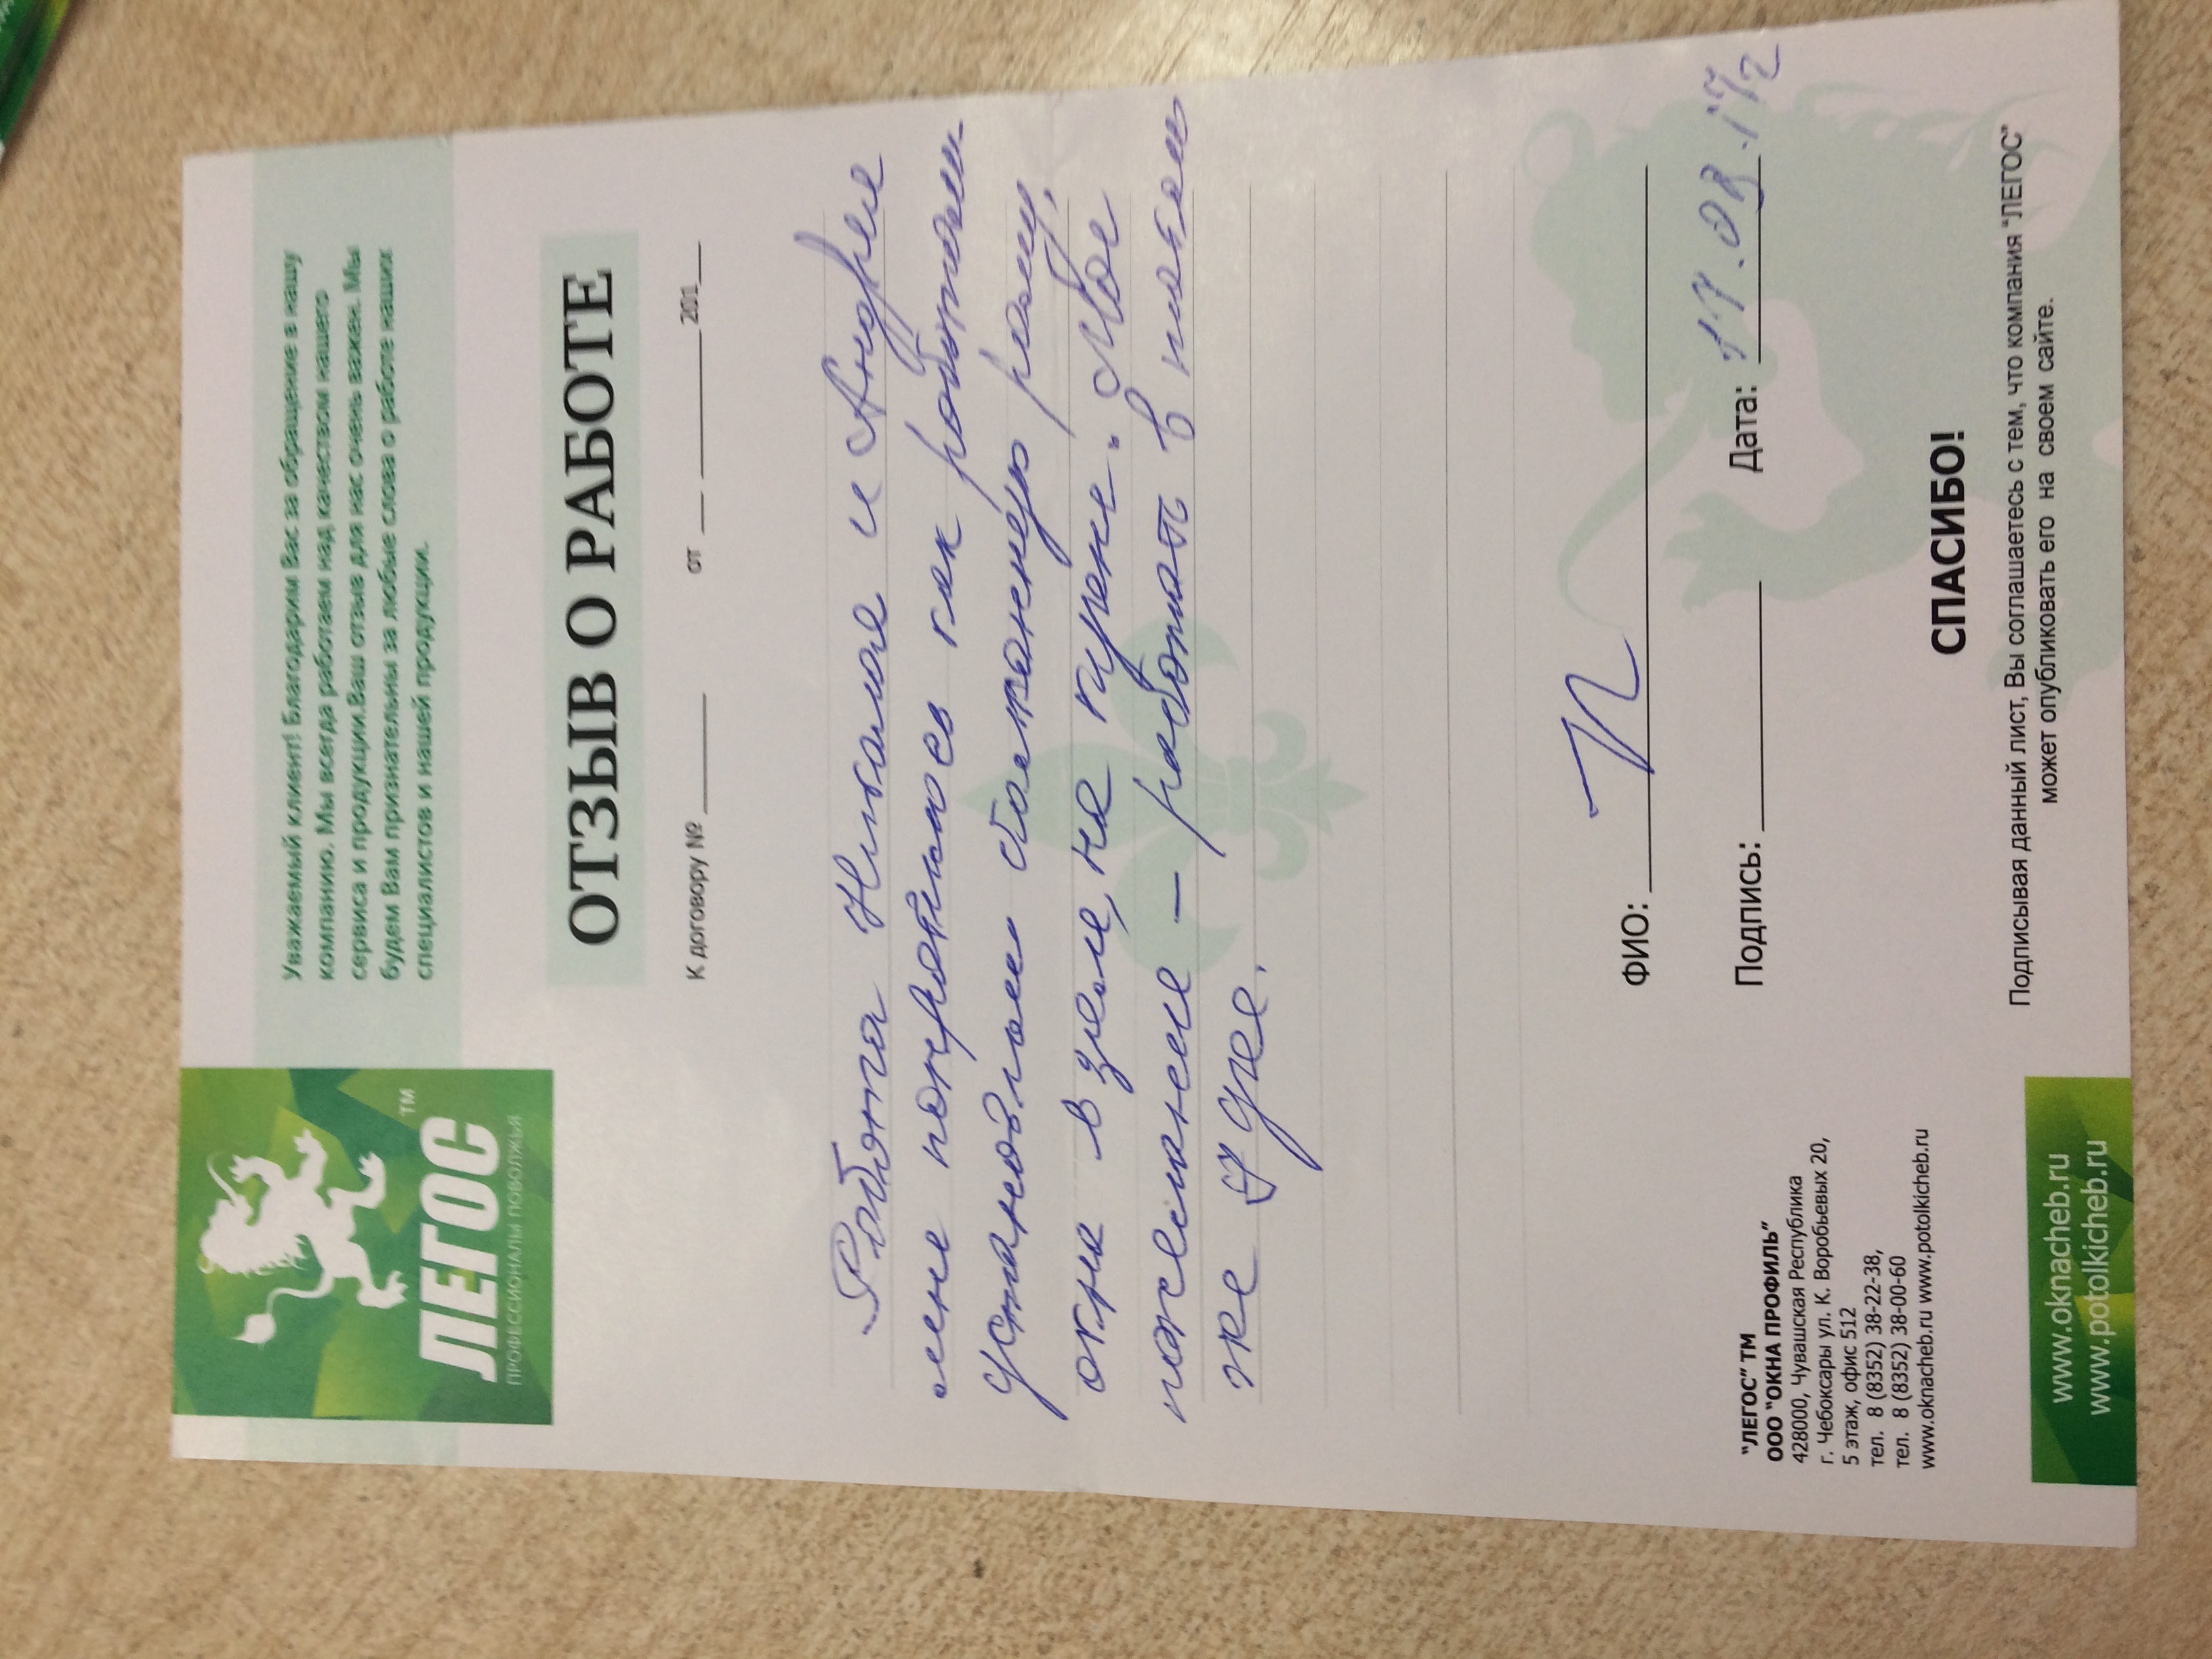 ЛЕГОС
ТМ
ПРОФЕССИОНАЛЫ ПОВОЛЖЬЯ
Уважаемый клиент! Благодарим Вас за обращение в нашу
компанию. Мы всегда работаем над качеством нашего
сервиса и продукции.Ваш отзыв для нас очень важен. Мы
будем Вам признательны за любые слова о работе наших
специалистов и нашей продукции.
ОТЗЫВ О РАБОТЕ
К договору № ________ от __ __________201__
Работа Николая и Андрея
мне понравилось как работали
установили балконную раму,
окна в зале, на кухне. Мое
пожелание – работать в таком
же духе.
ФИО:
Подпись: Дата: 17.03.17г
"ЛЕГОС" ТМ
ООО "ОКНА ПРОФИЛЬ"
428000, Чувашская Республика
г. Чебоксары ул. К. Воробьевых 20,
5 этаж, офис 512
тел. 8 (8352) 38-22-38,
тел. 8 (8352) 38-00-60
www.oknacheb.ru www.potolkicheb.ru
СПАСИБО!
Подписывая данный лист, Вы соглашаетесь с тем, что компания "ЛЕГОС"
может опубликовать его на своем сайте.
www.oknacheb.ru
www.potolkicheb.ru